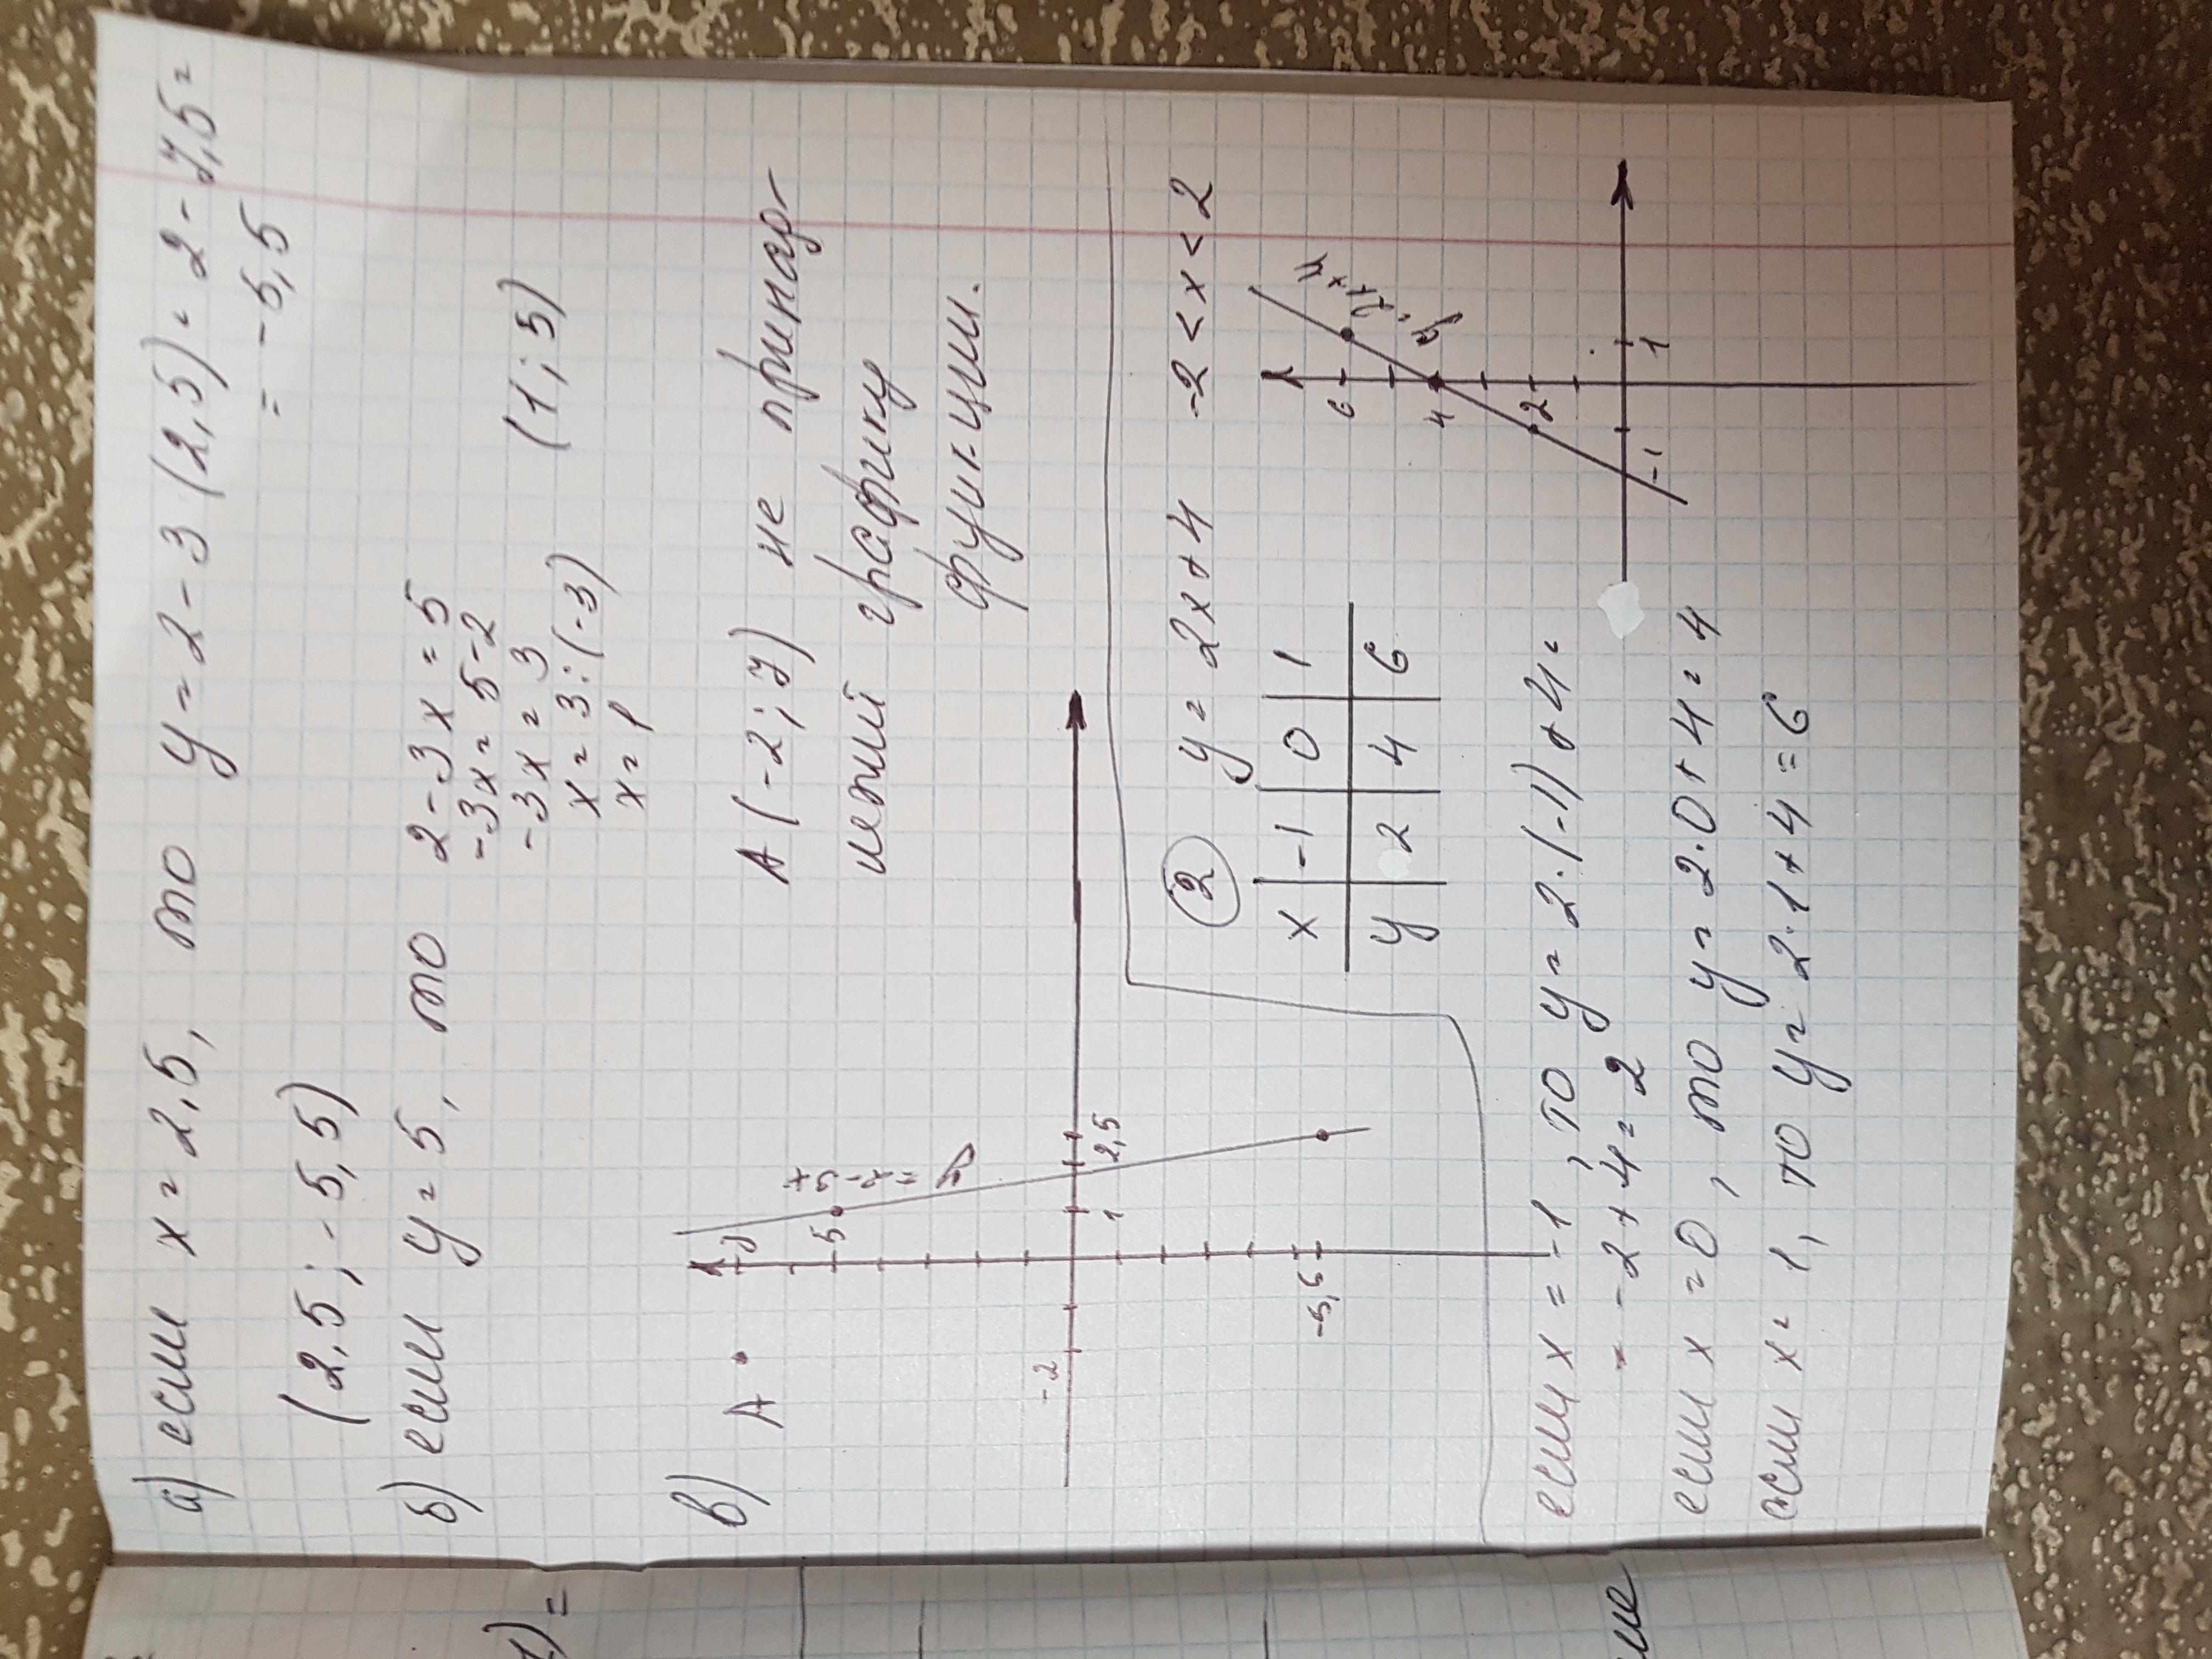 а) если x = 2,5, то y = 2 - 3 (2,5) = 2 - 7,5 =
= - 5,5
(2,5 ; - 5,5)
б) если y = 5, то 2 - 3x = 5
-3x = 5 - 2
-3x = 3
x = 3 : (-3)
x = 1
(1 ; 5)
в) A (-2 ; 7) не принад-
лежит графику
функции.
A
7
5
y = 2 - 3x
-2
1
2,5
-5,5
2 y = 2x + 4 -2 < x < 2
x -1 0 1
y 2 4 6
6
4
2
-1
1
если x = -1, то y = 2 · (-1) + 4 =
= - 2 + 4 = 2
если x = 0, то y = 2 · 0 + 4 = 4
если x = 1, то y = 2 · 1 + 4 = 6
) =